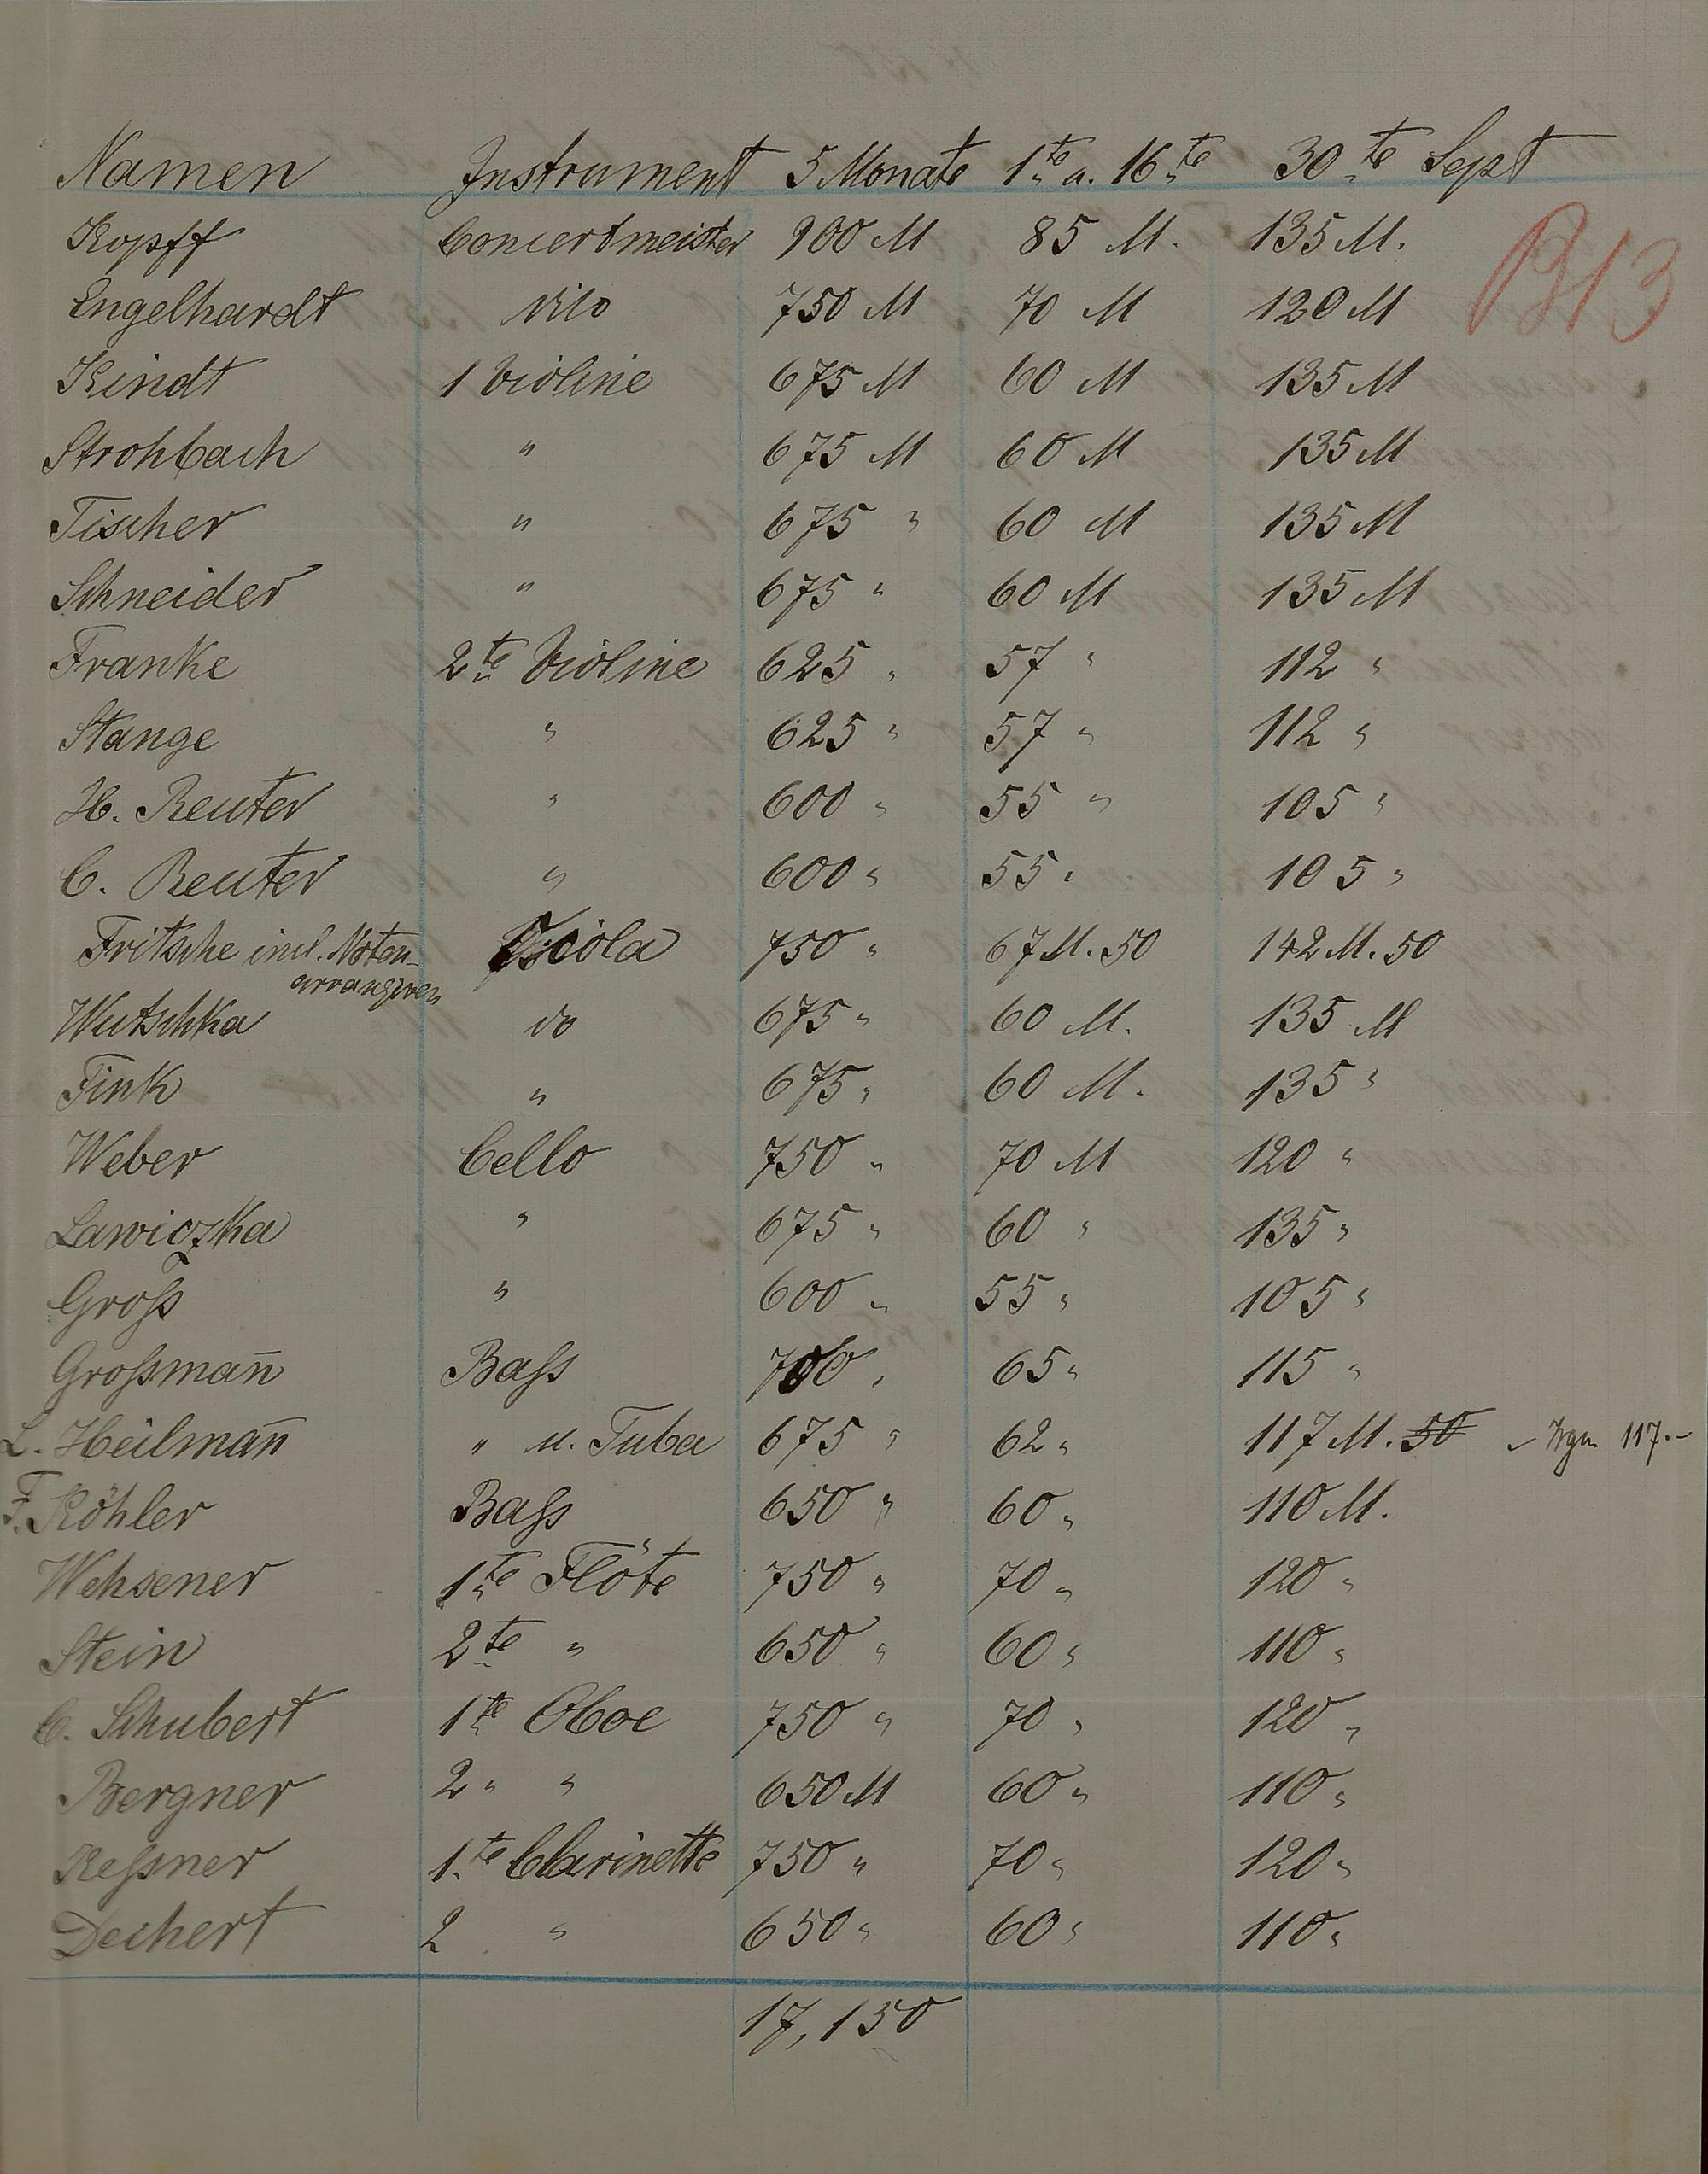 Namen Instrument 5 Monate 1te u. 16te 30te Sept
Kopff Concertmeister 900 M 85 M. 135 M.
B13
Engelhardt dito 750 M 70 M 120 M
Kindt 1 Violine 675 M 60 M 135 M
Strohbach " 675 M 60 M 135 M
Tischer " 675 " 60 M 135 M
Schneider " 675 " 60 M 135 M
Franke 2te Violine 625 " 57 " 112 "
Stange " 625 " 57 " 112 "
H. Reuter " 600 " 55 " 105 "
C. Reuter " 600 " 55 " 105 "
Fritsche incl. Noten- Viola 750 " 67 M. 50 142 M. 50
arrangiren
Wutschka do 675 " 60 M. 135 M
Fink " 675 " 60 M. 135 "
Weber Cello 750 " 70 M 120 "
Lawiczka " 675 " 60 " 135 "
Groß " 600 " 55 " 105 "
Großmañ Baß 700 " 65 " 115 "
L. Heilmañ " u. Tuba 675 " 62 " 117 M. 50 117.-
F. Köhler Baß 650 " 60 " 110 M.
Wehsener 1te Flöte 750 " 70 " 120 "
Stein 2te " 650 " 60 " 110 "
C. Schubert 1te Oboe 750 " 70 " 120 "
Bergner 2 " " 650 M 60 " 110 "
Keßner 1te Clarinette 750 " 70 " 120 "
Dechert 2 " 650 " 60 " 110 "
17,150